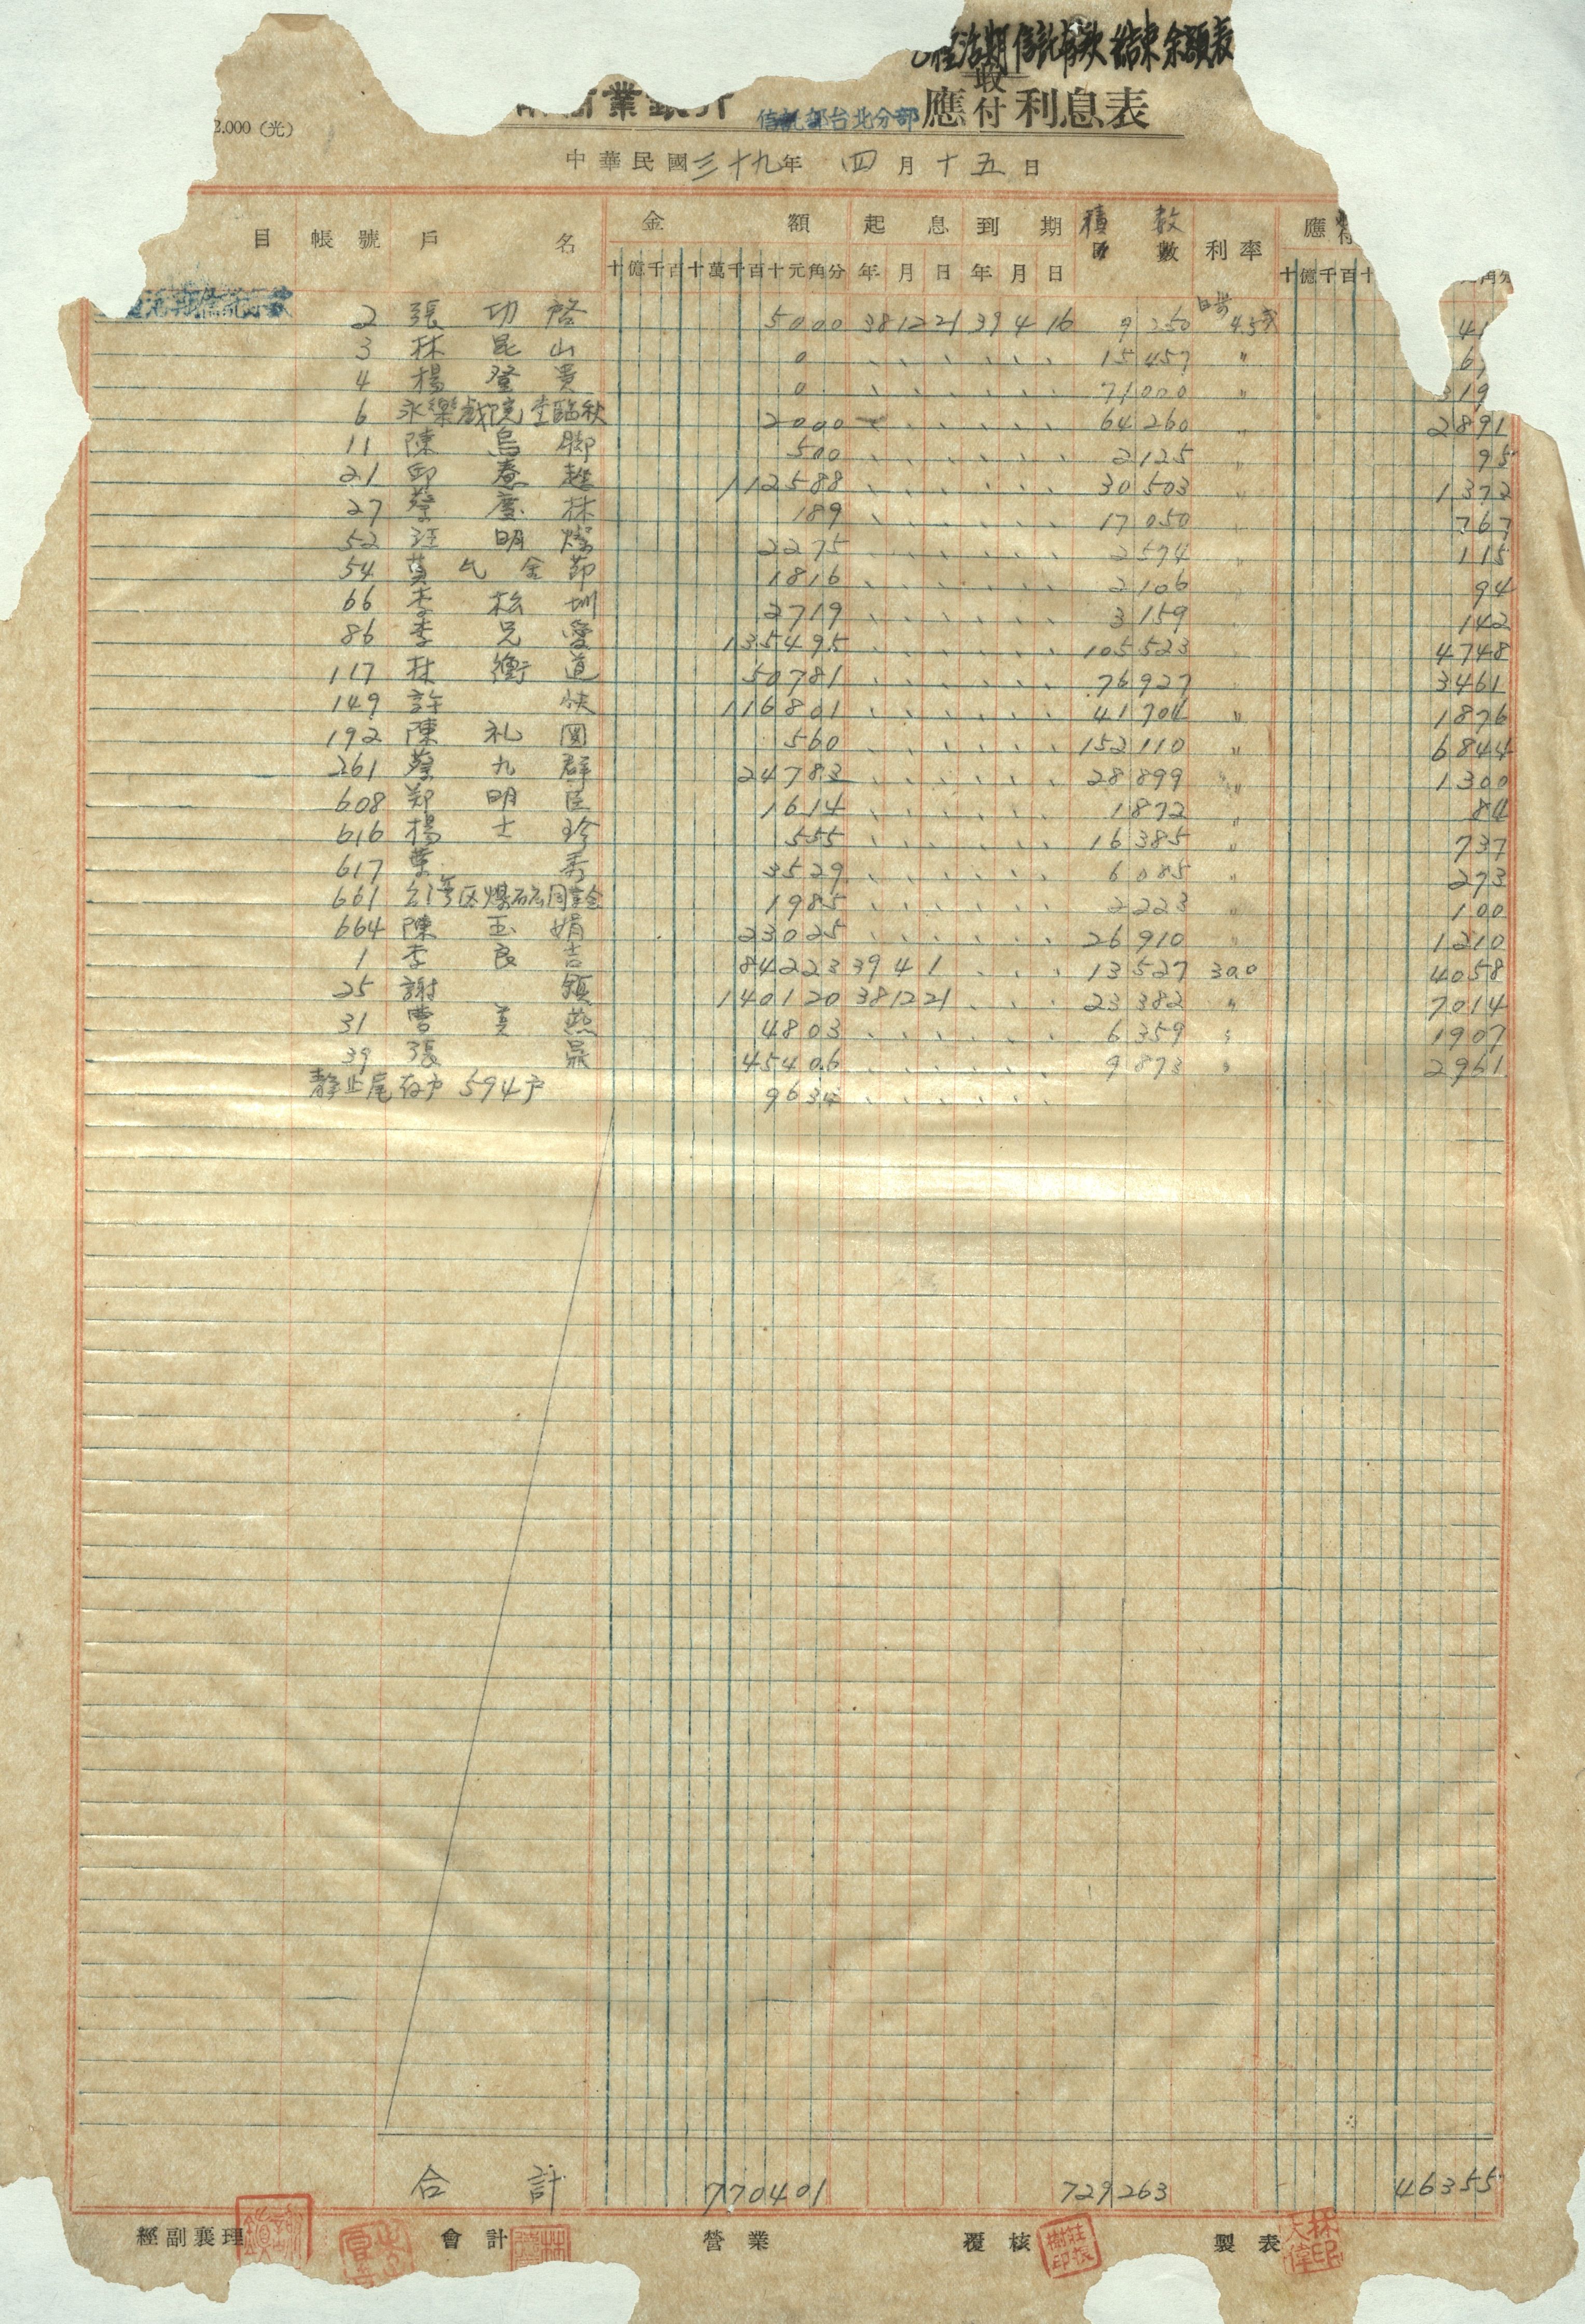 活期信託存款結束余額表
業銀行 信託部台北分部 應收付利息表
2.000 (光)
中華民國三十九年 四月十五日
目 帳號 戶名 金額 起息 到期 積數 日數 利率 應付
十億千百十萬千百十元角分 年月日 年月日 十億千百十 角分
2 張功啓 5000 38 12 21 39 4 16 9250 日步 4.5 41
3 林昆山 0 、、、、、、 15457 〃 6
4 楊登貴 0 、、、、、、 71000 〃 319
6 永樂戲院 2000 、、、、、、 64260 〃 2891
11 陳烏腳 500 、、、、、、 2125 〃 95
21 邱 112588 、、、、、、 30503 〃 1372
27 蔡慶林 189 、、、、、、 17050 〃 767
52 汪明燦 2275 、、、、、、 2574 〃 115
54 黃氏金 1816 、、、、、、 2106 〃 94
66 李松圳 2719 、、、、、、 3159 〃 142
86 李兄愛 135495 、、、、、、 105523 〃 4748
117 林衡道 50781 、、、、、、 76927 〃 3461
149 許快 116801 、、、、、、 41704 〃 1876
192 陳礼國 560 、、、、、、 152110 〃 6844
261 蔡九群 24783 、、、、、、 28899 〃 1300
608 鄭明臣 1614 、、、、、、 1872 〃 84
616 楊士珍 555 、、、、、、 16385 〃 737
617 葉秀 3529 、、、、、、 6085 〃 273
661 台湾区煤礦同業会 1985 、、、、、、 2223 〃 100
664 陳玉娟 23025 、、、、、、 26910 〃 1210
1 李良吉 84223 39 4 1 、、、 13527 30.0 4058
25 謝領 140120 38 12 21 、、、 23382 〃 7014
31 曹美燕 4803 、、、、、、 6359 〃 1907
39 張鼎 45406 、、、、、、 9873 〃 2961
静止尾存户 594户 9634 、、、、、、
合計 770401 729263 46355
經副襄理 會計 營業 覆核 莊振樹印 製表 林天偉印